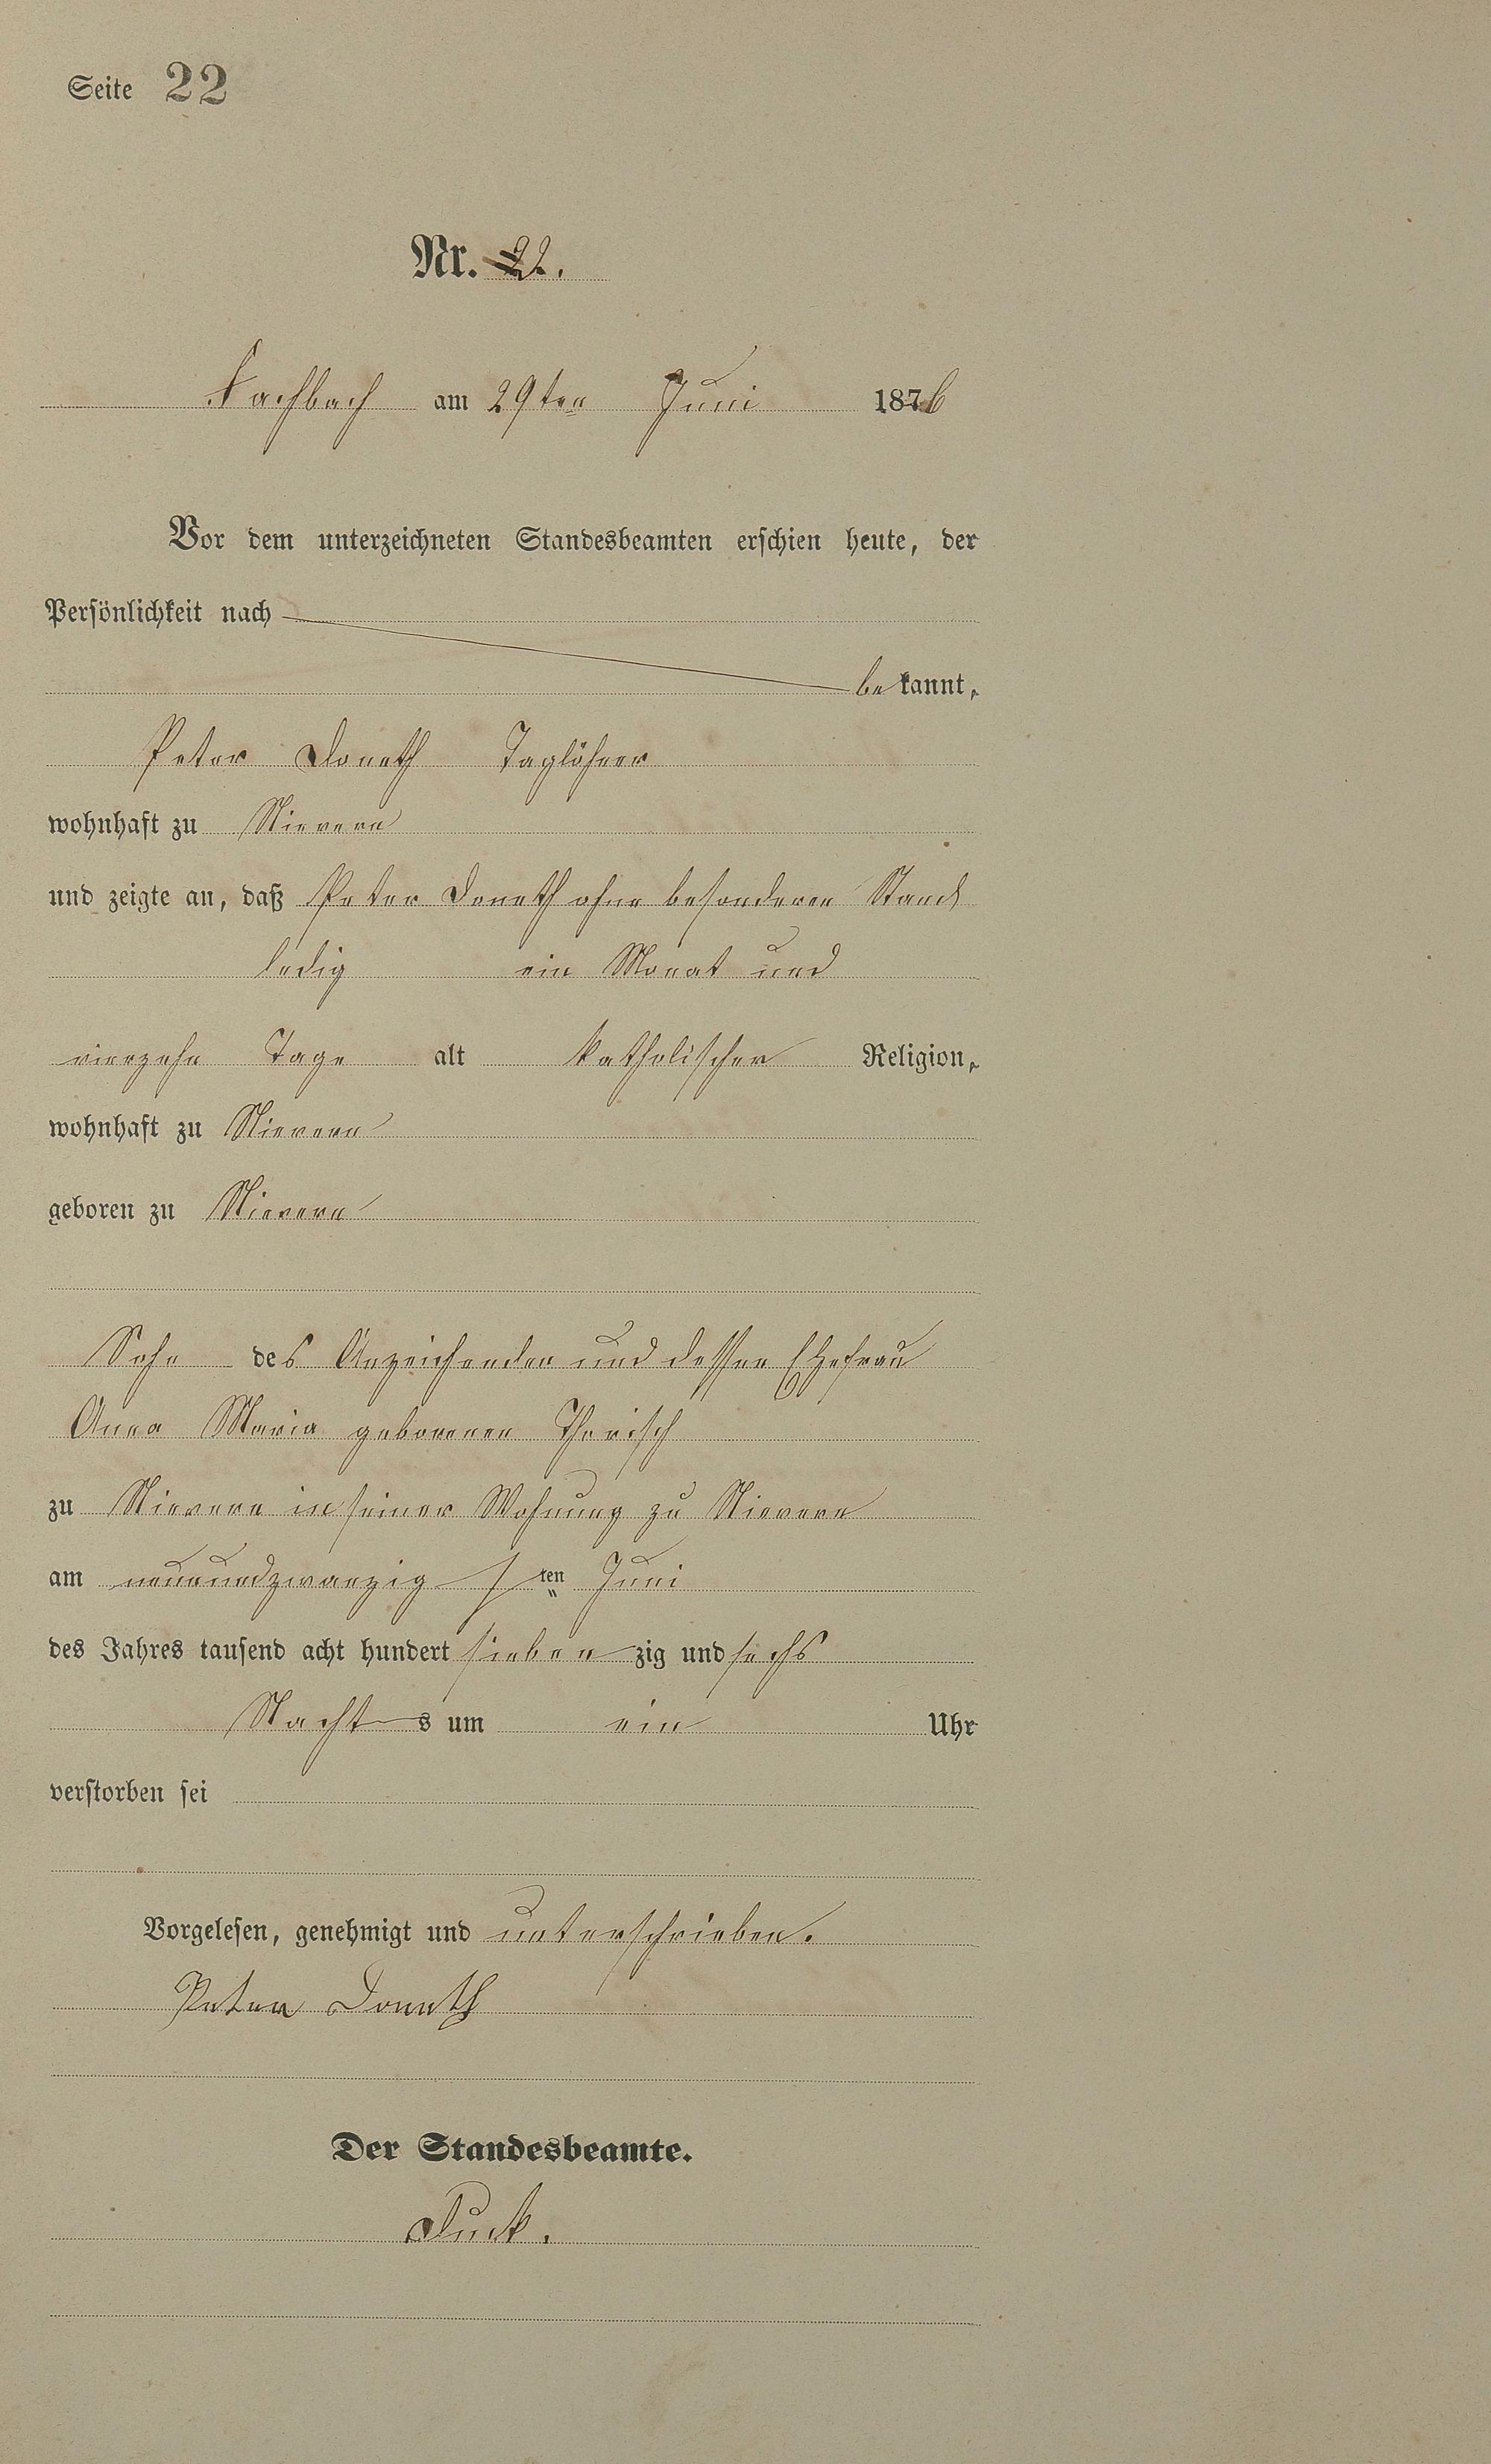 Seite 22
Nr. 22.
Fachbach am 29ten Juni 1876
Vor dem unterzeichneten Standesbeamten erschien heute, der
Persönlichkeit nach
bekannt,
Peter Donath Taglöhner
wohnhaft zu Nievern
und zeigte an, daß Peter Donath ohne besonderen Stand
ledig ein Monat und
vierzehn Tage alt katholischer Religion,
wohnhaft zu Nievern
geboren zu Nievern
Sohn des Anzeigenden und dessen Ehefrau
Anna Maria geborenen
zu Nievern in seiner Wohnung zu Nievern
am neunundzwanzigsten Juni
des Jahres tausend acht hundert siebenzig und sechs
Nachts um ein Uhr
verstorben sei
Vorgelesen, genehmigt und unterschrieben.
Peter Donath
Der Standesbeamte.